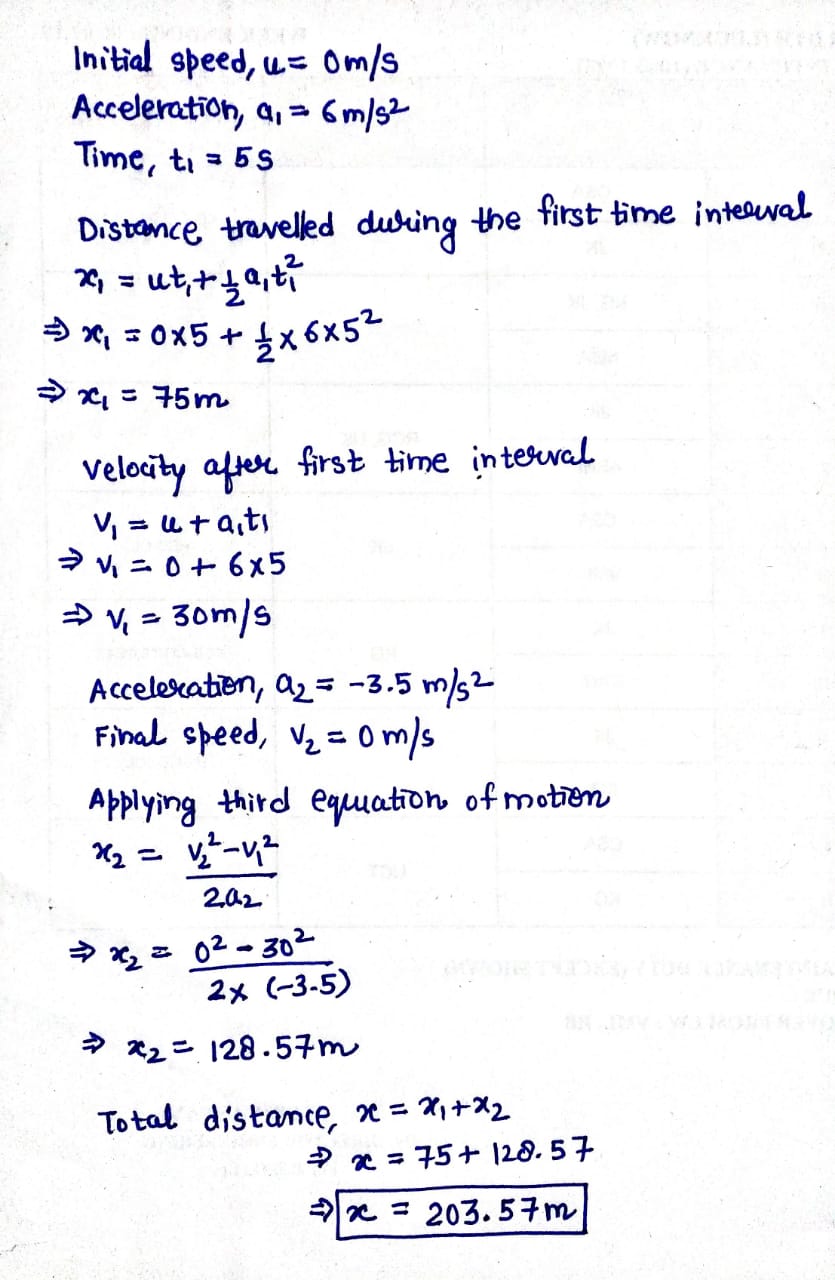 Initial speed, u = 0m/s
Acceleration, a₁ = 6m/s²
Time, t₁ = 5s
Distance travelled during the first time interval
x₁ = ut₁ + 1/2 a₁t₁²
⇒ x₁ = 0x5 + 1/2 x 6x5²
⇒ x₁ = 75m
Velocity after first time interval
V₁ = u + a₁t₁
⇒ V₁ = 0 + 6x5
⇒ V₁ = 30m/s
Acceleration, a₂ = -3.5 m/s²
Final speed, V₂ = 0 m/s
Applying third equation of motion
x₂ = (V₂² - V₁²) / 2a₂
⇒ x₂ = (0² - 30²) / 2x (-3.5)
⇒ x₂ = 128.57m
Total distance, x = x₁ + x₂
⇒ x = 75 + 128.57
⇒ x = 203.57m